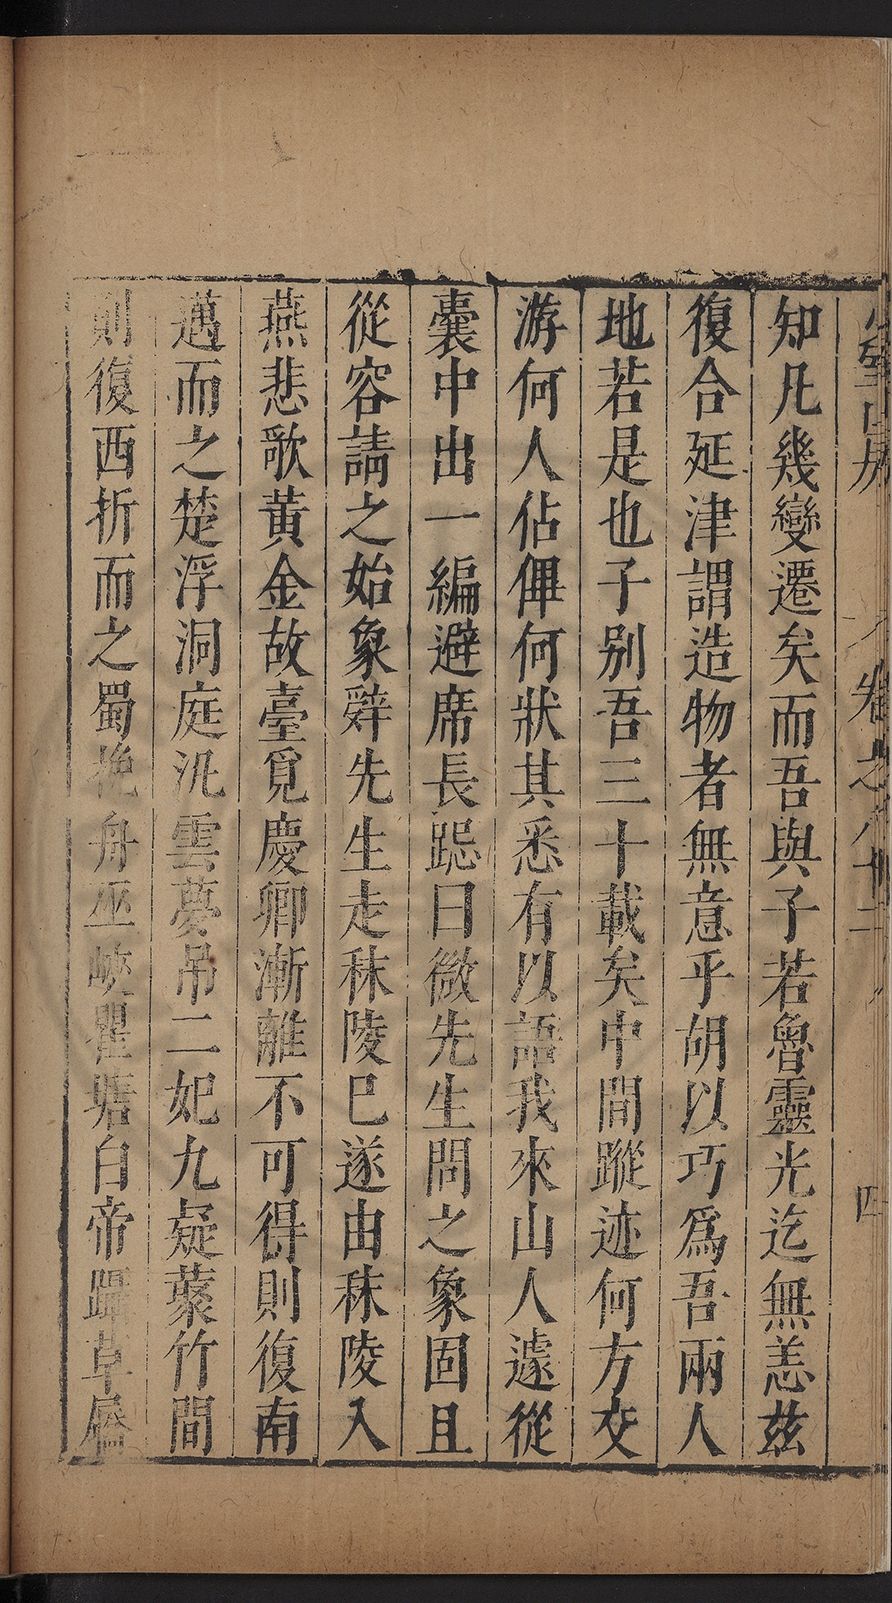 少室山房 卷之八十二 四
知凡幾變遷矣而吾與子若魯靈光迄無恙茲
復合延津謂造物者無意乎胡以巧爲吾兩人
地若是也子别吾三十載矣中間蹤迹何方交
游何人佔俾何狀其悉有以語我來山人遽從
囊中出一編避席長跽曰微先生問之象固且
從容請之始象辤先生走秣陵巳遂由秣陵入
燕悲歌黄金故臺覓慶卿漸離不可得則復南
邁而之楚浮洞庭汎雲夢吊二妃九疑藂竹間
則復西折而之蜀挽舟巫峽瞿塘白帝躡草屩